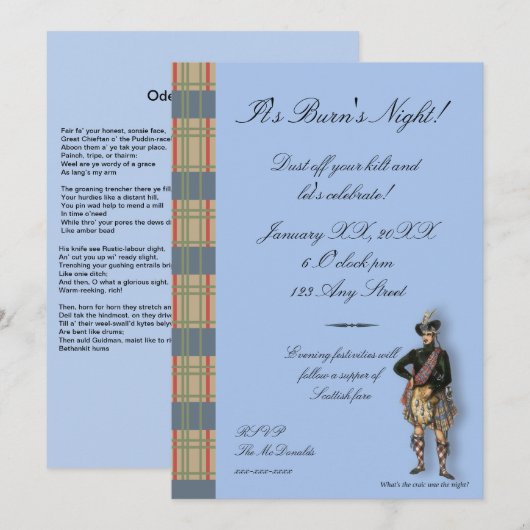 Ode
Fair fa' your honest, sonsie face,
Great Chieftan o' the Puddin-race
Aboon them a' ye tak your place,
Painch, tripe, or thairm:
Weel are ye wordy of a grace
As lang's my arm
The groaning trencher there ye fill,
Your hurdies like a distant hill,
You pin wad help to mend a mill
In time o'need
While thro' your pores the dews di
Like amber bead
His knife see Rustic-labour dight,
An' cut you up wi' ready slight,
Trenching your gushing entrails bri
Like onie ditch;
And then, O what a glorious sight,
Warm-reeking, rich!
Then, horn for horn they stretch an
Deil tak the hindmost, on they drive
Till a' their weel-swall'd kytes belyv
Are bent like drums;
Then auld Guidman, maist like to ri
Bethankit hums
It's Burn's Night!
Dust off your kilt and
let's celebrate!
January XX, 20XX
6 O'clock pm
123 Any Street
Evening festivities will
follow a supper of
Scottish fare
RSVP
The McDonalds
xxx-xxx-xxxx
What's the craic wae the night?